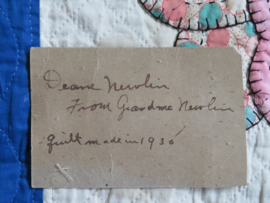 Deane Newlin
From Grandma Newlin
Quilt made in 1936